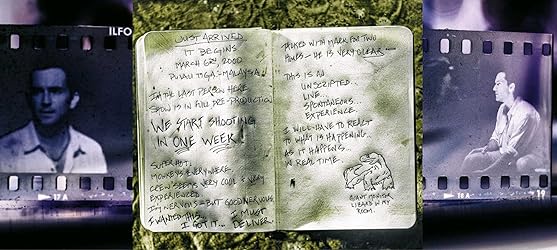 ILFO
JUST ARRIVED
IT BEGINS
MARCH 6TH, 2000
PULAU TIGA - MALAYSIA
I'M THE LAST PERSON HERE
SHOW IS IN FULL PRE-PRODUCTION
WE START SHOOTING
IN ONE WEEK!
SUPER HOT.
MONKEYS EVERYWHERE.
CREW SEEMS VERY COOL & VERY
EXPERIENCED
I'M NERVOUS - BUT GOOD NERVOUS
I WANTED THIS.
I GOT IT... I MUST
DELIVER.
TALKED WITH MARK FOR TWO
HOURS - HE IS VERY CLEAR...
THIS IS AN
UNSCRIPTED..
LIVE..
SPONTANEOUS..
EXPERIENCE.
I WILL HAVE TO REACT
TO WHAT IS HAPPENING..
AS IT HAPPENS
IN REAL TIME.
GIANT MONITOR
LIZARD IN MY
ROOM.
17